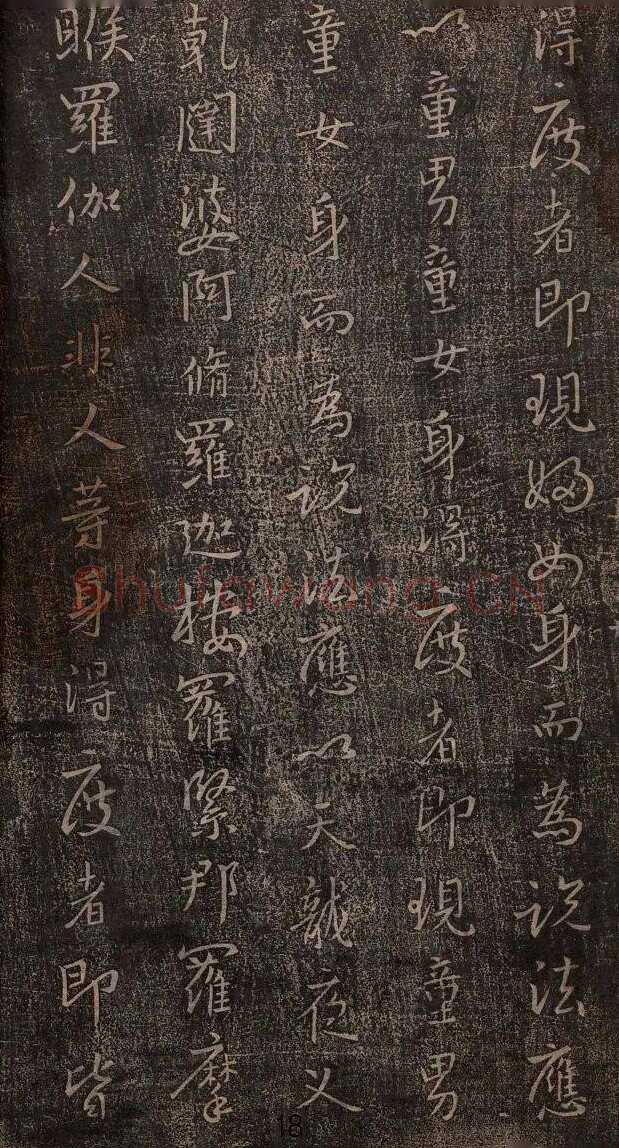 得度者即現婦女身而為說法應
以童男童女身得度者即現童男
童女身而為說法應以天龍夜叉
乾闥婆阿脩羅迦樓羅緊那羅摩
睺羅伽人非人等身得度者即皆
Shufawang.CN
18